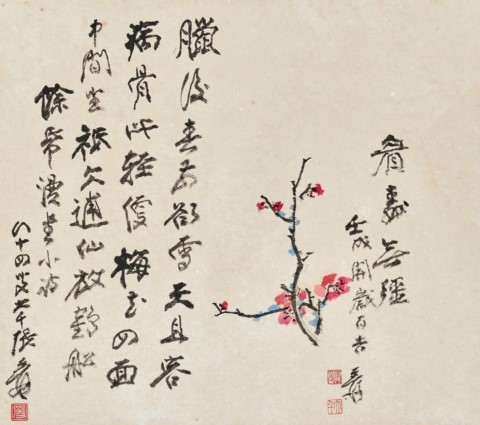 眉壽無疆
壬戌開歲百吉 爰
臘後春前欲雪天且容
病骨比輕梅花四面
中間坐祗欠逋仙放鶴船
餘帋漫書小詩
八十四叟大千張爰